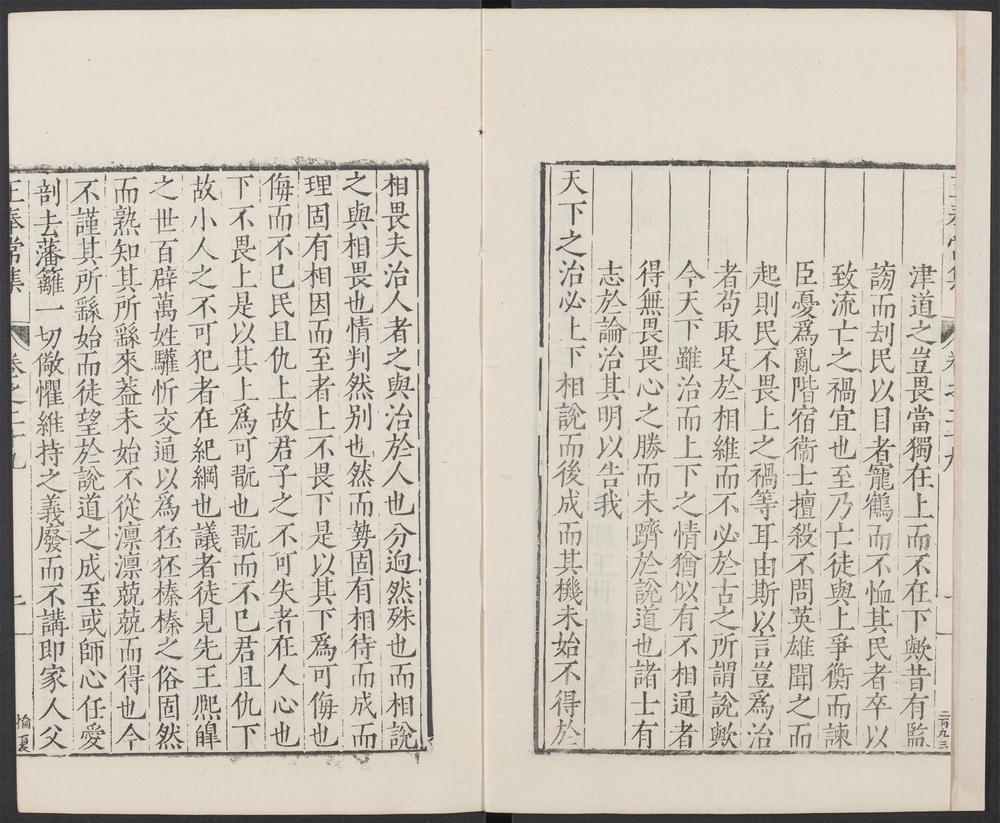 津道之豈畏當獨在上而不在下歟昔有監
謗而刦民以目者寵鶴而不恤其民者卒以
致流亡之禍宜也至乃亡徒與上爭衡而諫
臣憂爲亂階宿衞士擅殺不問英雄聞之而
起則民不畏上之禍等耳由斯以言豈爲治
者苟取足於相維而不必於古之所謂說歟
今天下雖治而上下之情猶似有不相通者
得無畏畏心之勝而未躋於說道也諸士有
志於論治其明以告我
天下之治必上下相說而後成而其機未始不得於
二百九三
相畏夫治人者之與治於人也分逈然殊也而相說
之與相畏也情判然別也然而勢固有相待而成而
理固有相因而至者上不畏下是以其下爲可侮也
侮而不已民且仇上故君子之不可失者在人心也
下不畏上是以其上爲可翫也翫而不已君且仇下
故小人之不可犯者在紀綱也議者徒見先王熈皥
之世百辟萬姓驩忻交通以爲狉狉榛榛之俗固然
而熟知其所繇來葢未始不從凛凛兢兢而得也今
不謹其所繇始而徒望於說道之成至或師心任愛
剖去藩籬一切儆懼維持之義廢而不講即家人父
王奉常集
卷之二十九
上